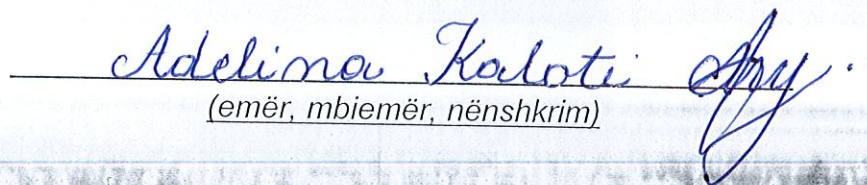 Adelina Kaloti
(emër, mbiemër, nënshkrim)